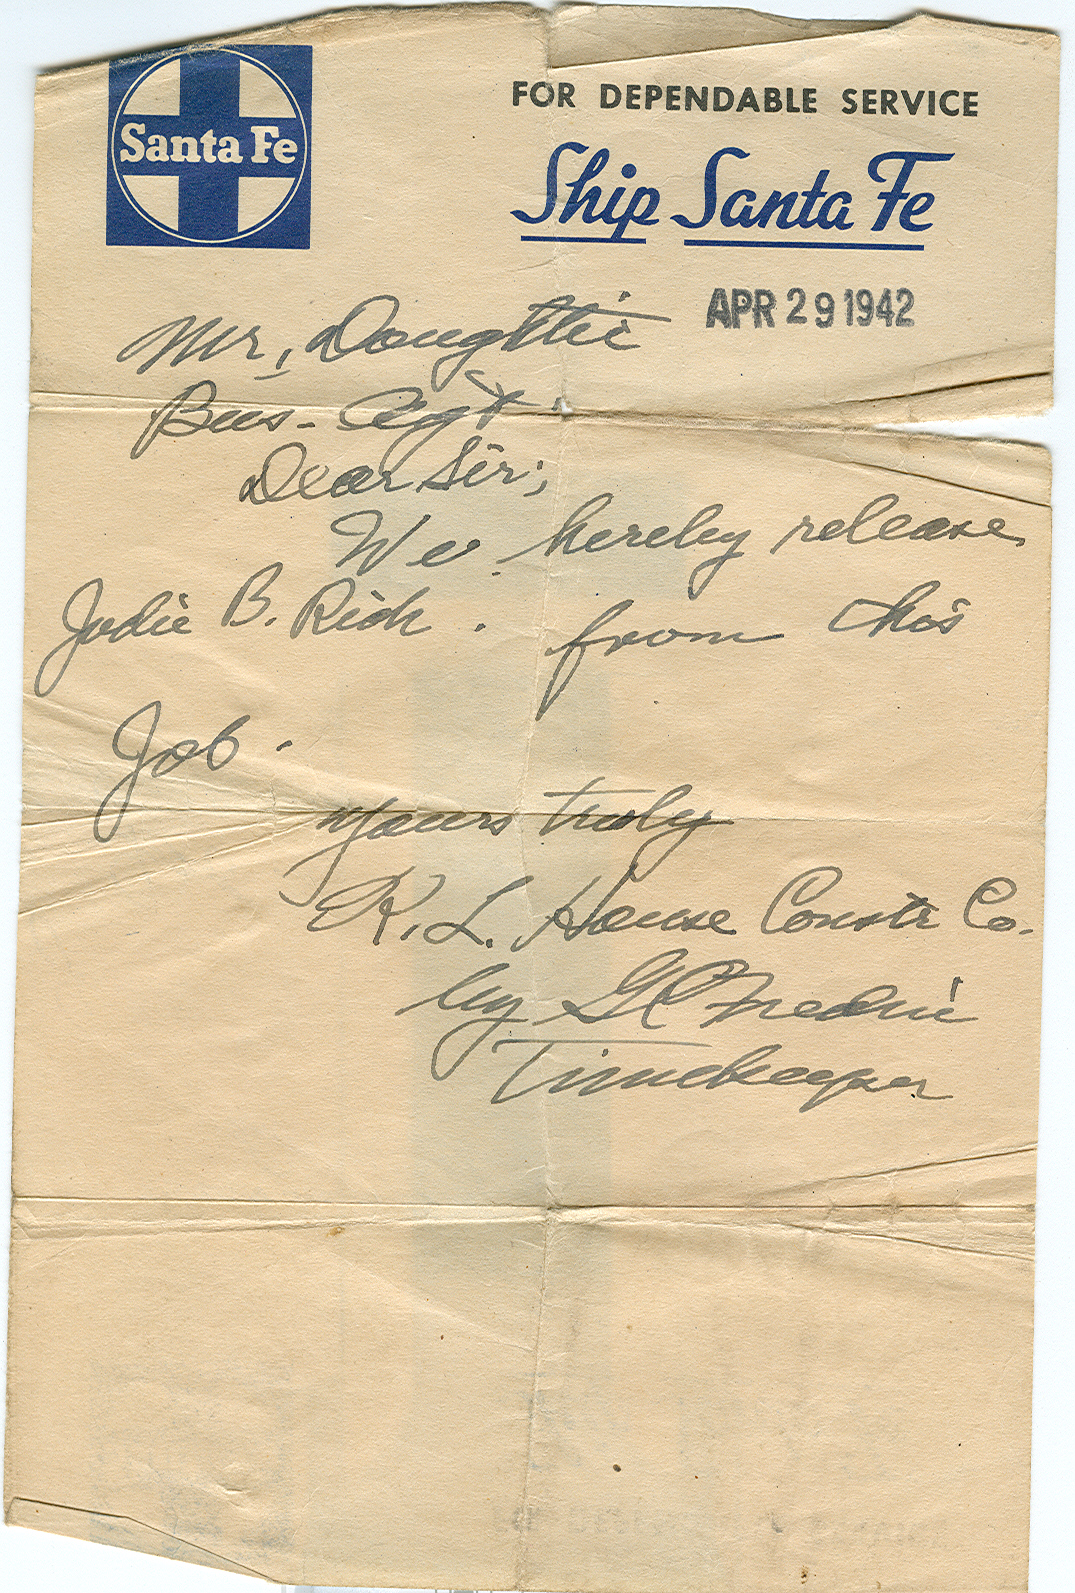 Santa Fe
FOR DEPENDABLE SERVICE
Ship Santa Fe
APR 29 1942
Mr,
Bus- Agt.
Dear Sir;
We hereby release
Jodie B. Rich. from this
Job.
Yours truly
R. L. House Constr Co.
by
Timekeeper